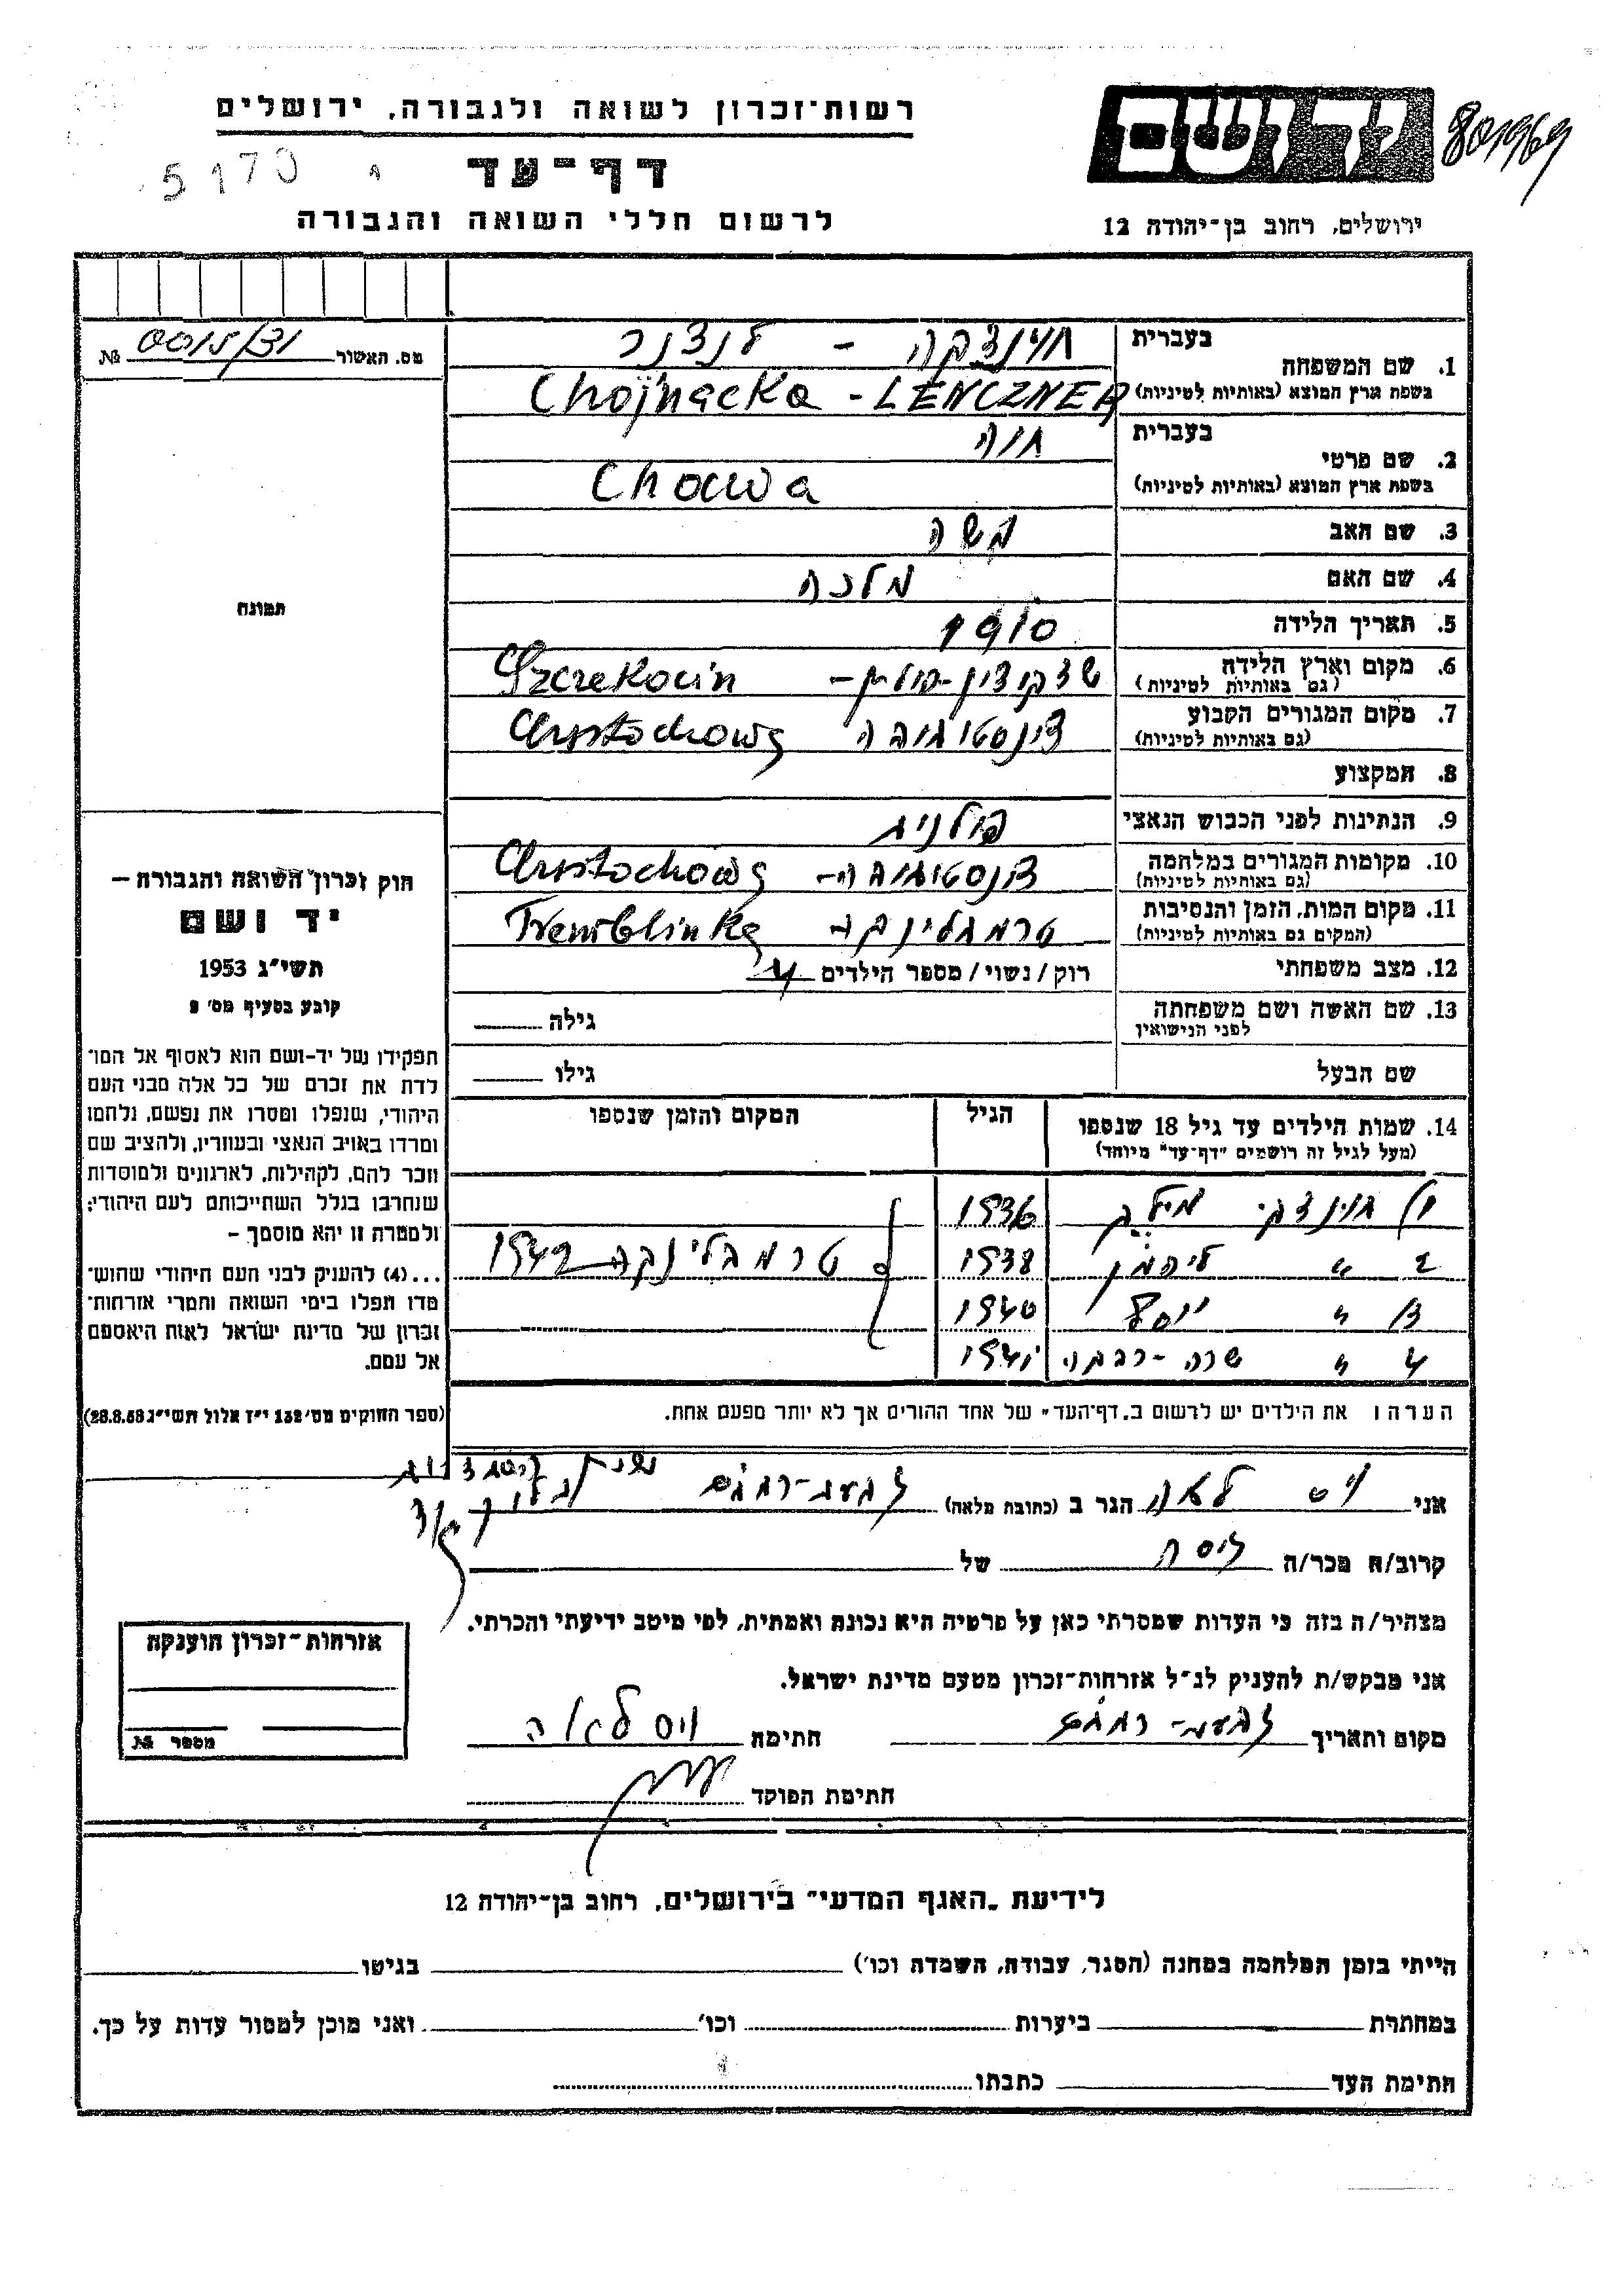 רשות־זכרון לשואה ולגבורה, ירושלים
יד ושם
801969
דף־עד
5170
לרשום חללי השואה והגבורה
ירושלים, רחוב בן־יהודה 12
מס. האשור 0015/31 №
בעברית
1. שם המשפחה
חוינצקה - לנצנר
בשפת ארץ המוצא (באותיות לטיניות)
Chojnacka - LENCZNER
בעברית
2. שם פרטי
חוה
בשפת ארץ המוצא (באותיות לטיניות)
Chawa
3. שם האב משה
4. שם האם מלכה
5. תאריך הלידה 1910
6. מקום וארץ הלידה
(גם באותיות לטיניות)
שצקוצין-פולין- Szczekocin
7. מקום המגורים הקבוע
(גם באותיות לטיניות)
צ'נסטוחובה
8. המקצוע
9. הנתינות לפני הכבוש הנאצי פולנית
10. מקומות המגורים במלחמה
(גם באותיות לטיניות)
צ'נסטוחובה-
11. מקום המות, הזמן והנסיבות
(המקום גם באותיות לטיניות)
טרמבלינקה Tremblinka
12. מצב משפחתי רוק/נשוי/מספר הילדים 4
13. שם האשה ושם משפחתה
לפני הנישואין
גילה
שם הבעל גילו
14. שמות הילדים עד גיל 18 שנספו
(מעל לגיל זה רושמים "דף־עד" מיוחד)
הגיל
המקום והזמן שנספו
1) חוינצקי 1936
2 " 1938 טרמבלינקה 1942
3 " יוסף 1940
4 " שרה-רבקה 1941
הערה: את הילדים יש לרשום ב„דף־העד" של אחד ההורים אך לא יותר מפעם אחת.
תמונה
חוק זכרון השואה והגבורה —
יד ושם
תשי"ג 1953
קובע בסעיף מס' 2
תפקידו של יד-ושם הוא לאסוף אל המו־
לדת את זכרם של כל אלה מבני העם
היהודי, שנפלו ומסרו את נפשם, נלחמו
ומרדו באויב הנאצי ובעוזריו, ולהציב שם
וזכר להם, לקהילות, לארגונים ולמוסדות
שנחרבו בגלל השתייכותם לעם היהודי;
ולמטרה זו יהא מוסמך –
...(4) להעניק לבני העם היהודי שהוש־
מדו ונפלו בימי השואה והמרי אזרחות־
זכרון של מדינת ישראל לאות היאספם
אל עמם.
(ספר החוקים מס' 132 י"ז אלול תשי"ג 28.8.53)
אני ויס לאה הגר ב (כתובת מלאה) גבעת-רמבם
קרוב/ה מכר/ה גיסה של
מצהיר/ה בזה כי העדות שמסרתי כאן על פרטיה היא נכונה ואמתית, לפי מיטב ידיעתי והכרתי.
אני מבקש/ת להעניק לנ"ל אזרחות־זכרון מטעם מדינת ישראל.
מקום ותאריך גבעת-רמבם חתימה ויס לאה
חתימת הפוקד
אזרחות־זכרון הוענקה
מספר №
לידיעת „האגף המדעי" בירושלים, רחוב בן־יהודה 12
הייתי בזמן המלחמה במחנה (הסגר, עבודה, השמדה וכו') בגיטו
במחתרת ביערות וכו' ואני מוכן למסור עדות על כך.
חתימת העד כתבתו